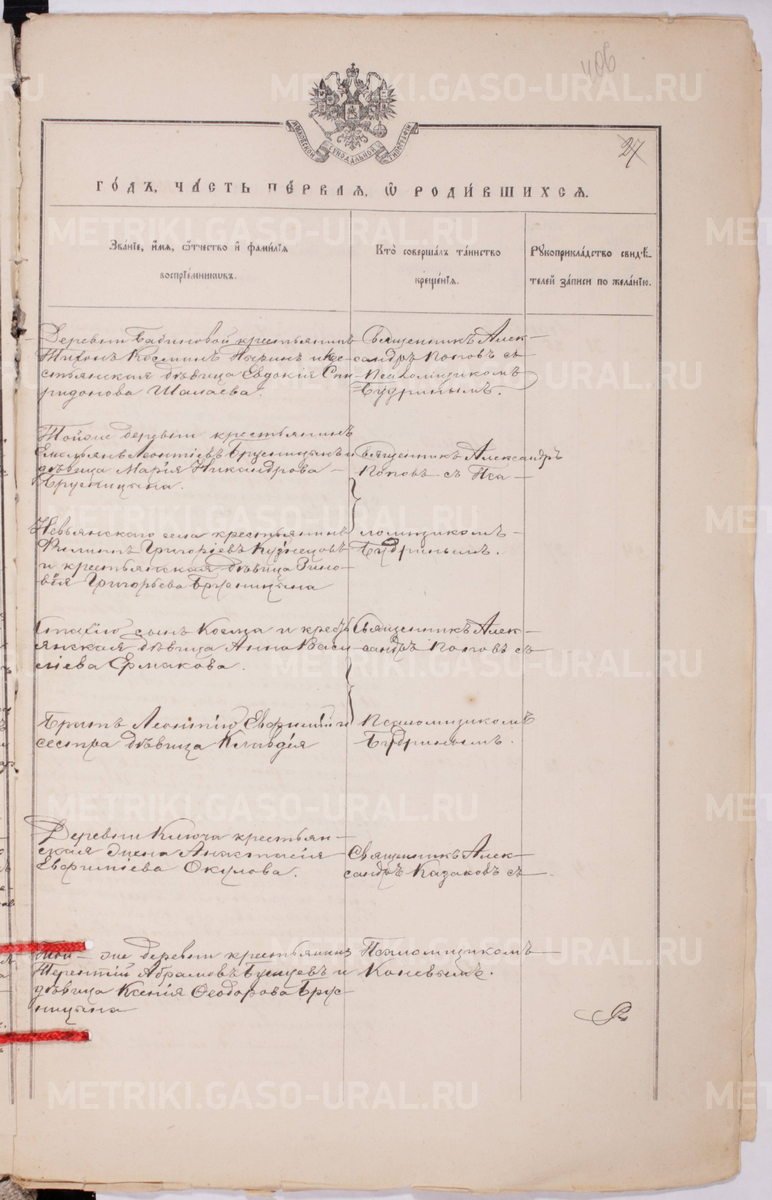 406
27
МОСКОВСКОЙ СѴНОДАЛЬНОЙ ТИПОГРАФІИ
ГОДЪ, ЧАСТЬ ПЕРВАЯ, Ѡ РОДИВШИХСЯ.
Званіе, имя, отчество и фамилія
воспріемниковъ.
Кто совершалъ таинство
крещенія.
Рукоприкладство свидѣ-
телей записи по желанію.
Деревни крестьянинъ
Тихонъ Козминъ и кре-
стьянская дѣвица Евдокія Спи
ридонова Шалаева.
Священникъ Алек-
сандръ Поповъ съ
Псаломщикомъ
Будринымъ.
Тойже деревни крестьянинъ
Емельянъ Леонтіевъ Брусницынъ и
дѣвица Марія Никандрова
Брусницына.
Священникъ Александръ
Поповъ съ Пса-
Невьянскаго села крестьянинъ
Филиппъ Григорьевъ Кузнецовъ
и крестьянская дѣвица Зино-
вія Григорьева Брусницына
ломщикомъ
Будринымъ.
сынъ Козма и кресть
янская дѣвица Анна Васи
лiева Ермакова.
Священникъ Алек-
сандръ Поповъ съ
Братъ Леонтію Евфимій и
сестра дѣвица Клавдія
Псаломщикомъ
Будринымъ.
Деревни Ключа крестьян-
ская жена Анастасія
Евфиміева Окулова.
Священникъ Алек-
сандръ Казаковъ съ
Той-же деревни крестьянинъ
Терентій Абрамовъ и
дѣвица Ксенія Ѳеодорова Брус-
ницына
Псаломщикомъ
Коневымъ.
METRIKI.GASO-URAL.RU